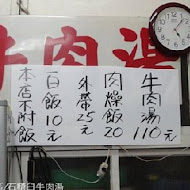 牛肉湯
牛肉湯110元
肉燥飯20
外帶25元
白飯10元
本店不附飯
/石精臼牛肉湯